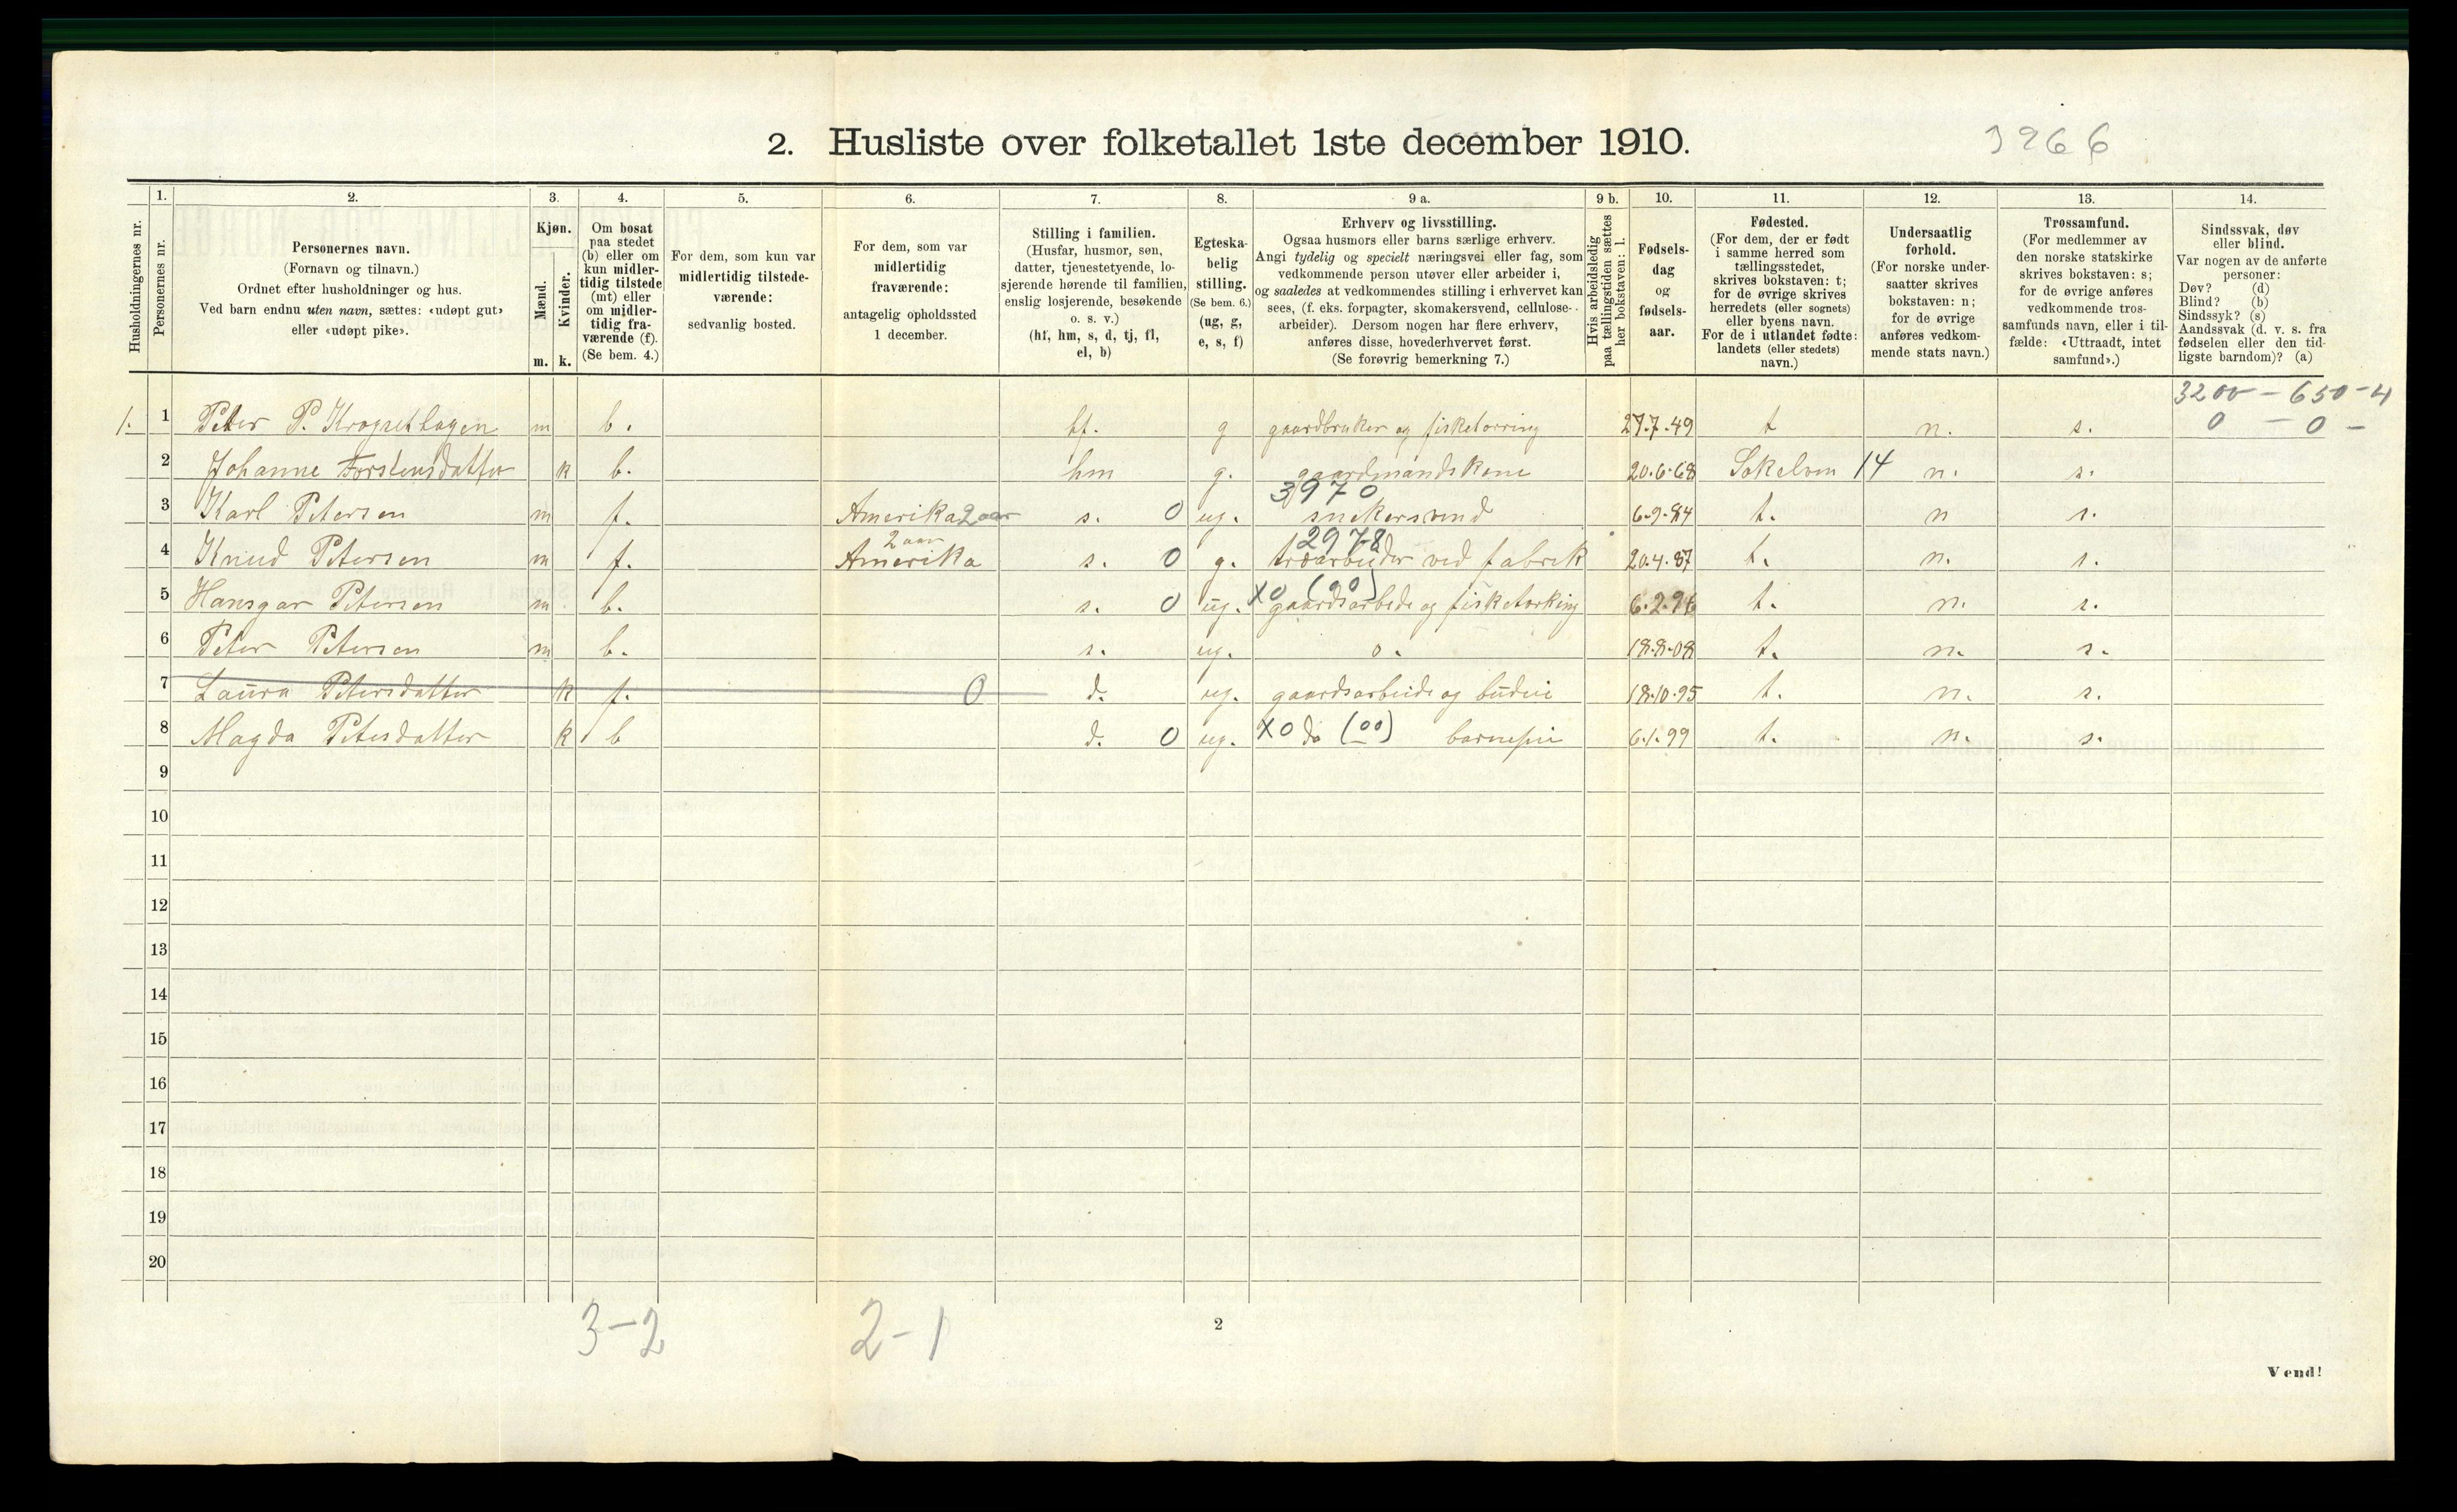 2. Husliste over folketallet 1ste december 1910.
3266
1. 2. 3. 4. 5. 6. 7. 8. 9 a. 9 b. 10. 11. 12. 13. 14.
Husholdningernes nr.
Personernes nr.
Personernes navn.
(Fornavn og tilnavn.)
Ordnet efter husholdninger og hus.
Ved barn endnu uten navn, sættes: «udøpt gut»
eller «udøpt pike».
Kjøn.
Mænd.
Kvinder.
m. k.
Om bosat
paa stedet
(b) eller om
kun midler-
tidig tilstede
(mt) eller
om midler-
tidig fra-
værende (f).
(Se bem. 4.)
For dem, som kun var
midlertidig tilstede-
værende:
sedvanlig bosted.
For dem, som var
midlertidig
fraværende:
antagelig opholdssted
1 december.
Stilling i familien.
(Husfar, husmor, søn,
datter, tjenestetyende, lo-
sjerende hørende til familien,
enslig losjerende, besøkende
o. s. v.)
(hf, hm, s, d, tj, fl,
el, b)
Egteska-
belig
stilling.
(Se bem. 6.)
(ug, g,
e, s, f)
Erhverv og livsstilling.
Ogsaa husmors eller barns særlige erhverv.
Angi tydelig og specielt næringsvei eller fag, som
vedkommende person utøver eller arbeider i,
og saaledes at vedkommendes stilling i erhvervet kan
sees, (f. eks. forpagter, skomakersvend, cellulose-
arbeider). Dersom nogen har flere erhverv,
anføres disse, hovederhvervet først.
(Se forøvrig bemerkning 7.)
Hvis arbeidsledig
paa tællingstiden sættes
her bokstaven: l.
Fødsels-
dag
og
fødsels-
aar.
Fødested.
(For dem, der er født
i samme herred som
tællingsstedet,
skrives bokstaven: t;
for de øvrige skrives
herredets (eller sognets)
eller byens navn.
For de i utlandet fødte:
landets (eller stedets)
navn.)
Undersaatlig
forhold.
(For norske under-
saatter skrives
bokstaven: n;
for de øvrige
anføres vedkom-
mende stats navn.)
Trossamfund.
(For medlemmer av
den norske statskirke
skrives bokstaven: s;
for de øvrige anføres
vedkommende tros-
samfunds navn, eller i til-
fælde: «Uttraadt, intet
samfund».)
Sindssvak, døv
eller blind.
Var nogen av de anførte
personer:
Døv? (d)
Blind? (b)
Sindssyk? (s)
Aandssvak (d. v. s. fra
fødselen eller den tid-
ligste barndom)? (a)
3200 - 650 - 4
1. 1 Peter P. Krogsethagen m b. hf. g gaardbruker og fisketørring 27.7.49 t n. s. 0 - 0 -
2 Johanne Torstensdatter k b. hm g. gaardmandskone 20.6.68 Sokelven 14 n. s.
3970
3 Karl Petersen m f. Amerika 2 aar s. 0 ug. snekersvend 6.9.84 t. n s.
2 aar 2978
4 Knud Petersen m f. Amerika s. 0 g. træarbeider ved fabrik 20.4.87 t. n. s.
5 Hansgar Petersen m b. s. 0 ug. X0 (00) gaardsarbeide og fisketørking 6.2.96 t. n. s.
6 Peter Petersen m b. s. ug. o. 18.8.08 t. n. s.
7 Laura Petersdatter k f. 0 d. ug. gaardsarbeide og budeie 18.10.95 t. n. s.
8 Magda Petersdatter k b d. 0 ug. X0 do (00) barnepie 6.1.99 t. n. s.
9
10
11
12
13
14
15
16
17
18
19
20
3-2 2-1
2
Vend!